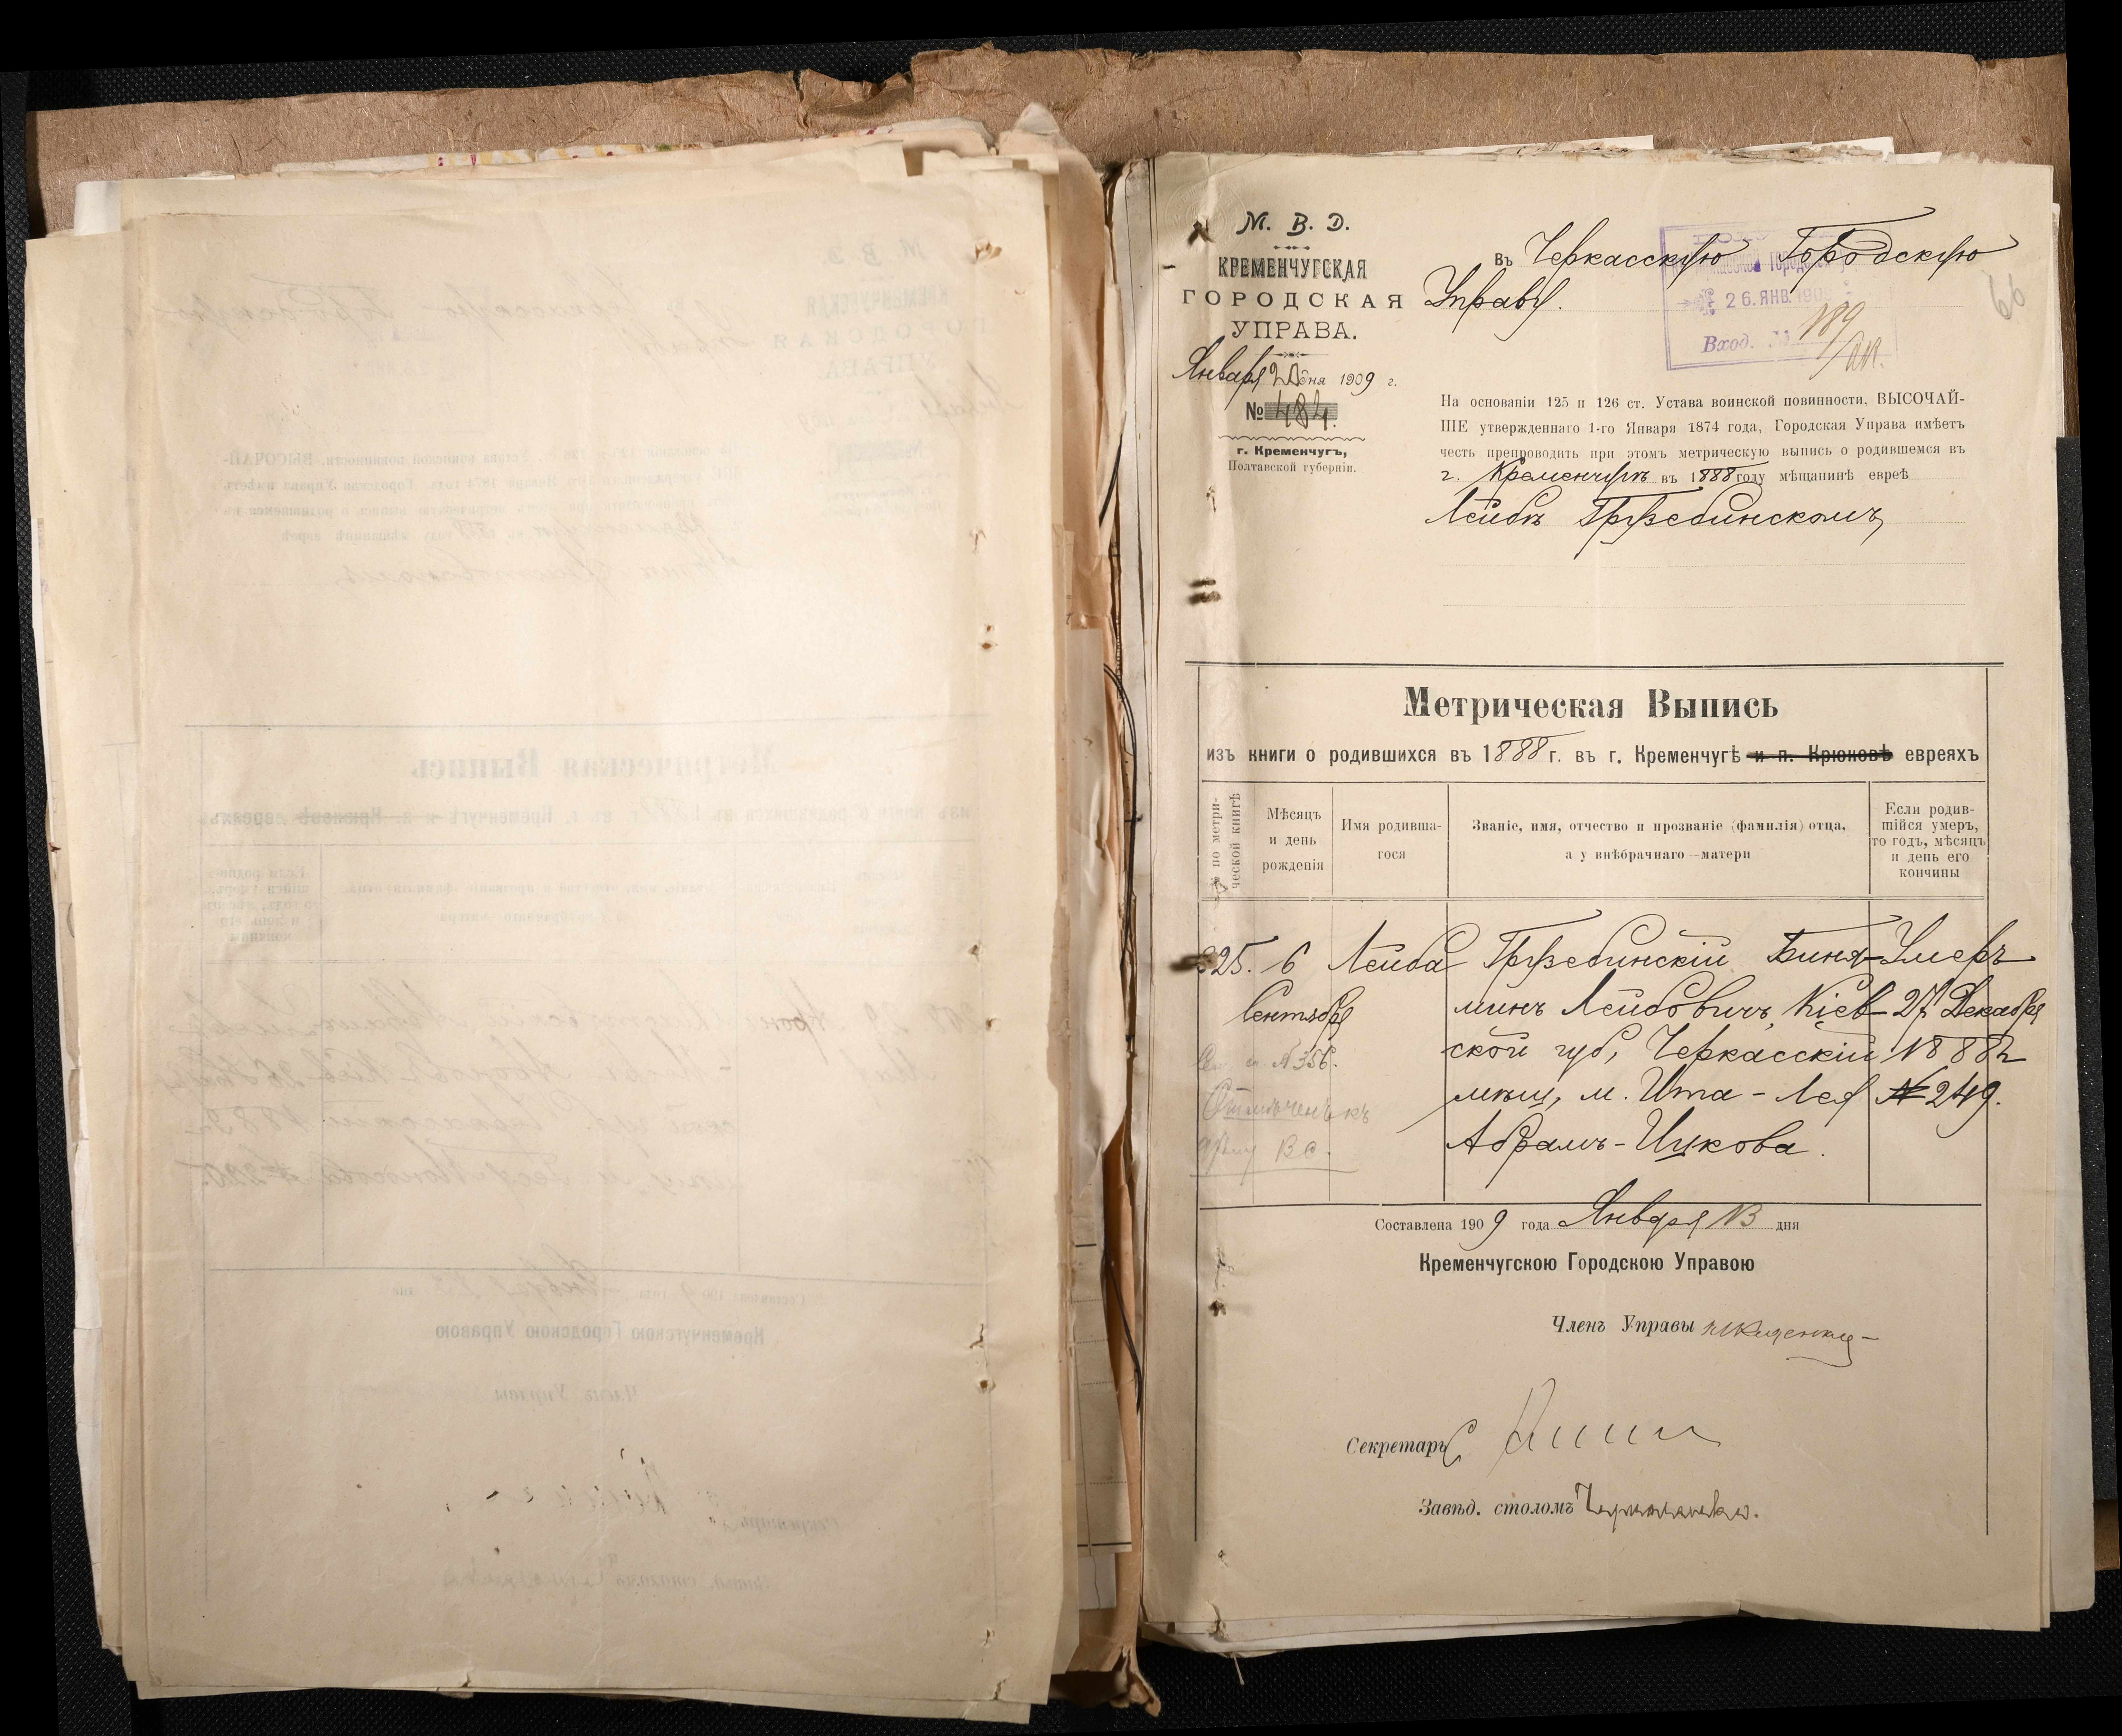 М. В. Д.
КРЕМЕНЧУГСКАЯ
ГОРОДСКАЯ
УПРАВА.
Января 20 дня 1909 г.
№ 484.
г. Кременчугъ,
Полтавской губерніи.
66
Въ Черкасскую Городскую
Управу.
26. ЯНВ. 1909
Вход. № 189
На основаніи 125 и 126 ст. Устава воинской повинности, ВЫСОЧАЙ-
ШЕ утвержденнаго 1-го Января 1874 года, Городская Управа имѣетъ
честь препроводить при этомъ метрическую выпись о родившемся въ
г. Кременчугѣ въ 1888 году мѣщанинѣ евреѣ
Лейбѣ Гржебинскомъ
Метрическая Выпись
изъ книги о родившихся въ 1888 г. въ г. Кременчугѣ и п. Крюковѣ евреяхъ
№ по метри-
ческой книгѣ
Мѣсяцъ
и день
рожденія
Имя родивша-
гося
Званіе, имя, отчество и прозваніе (фамилія) отца,
а у внѣбрачнаго—матери
Если родив-
шійся умеръ,
то годъ, мѣсяцъ
и день его
кончины
325. 6 Лейба Гржебинскій Бинья- Умеръ
Сентября минъ Лейбовичъ, Кіев- 27 Декабря
ской губ, Черкасскій 1888 г
мѣщ, м. Ита-Лея № 249.
Абрамъ-Ицкова.
№ 356.
Составлена 1909 года Января 13 дня
Кременчугскою Городскою Управою
Членъ Управы
Секретарь
Завѣд. столомъ